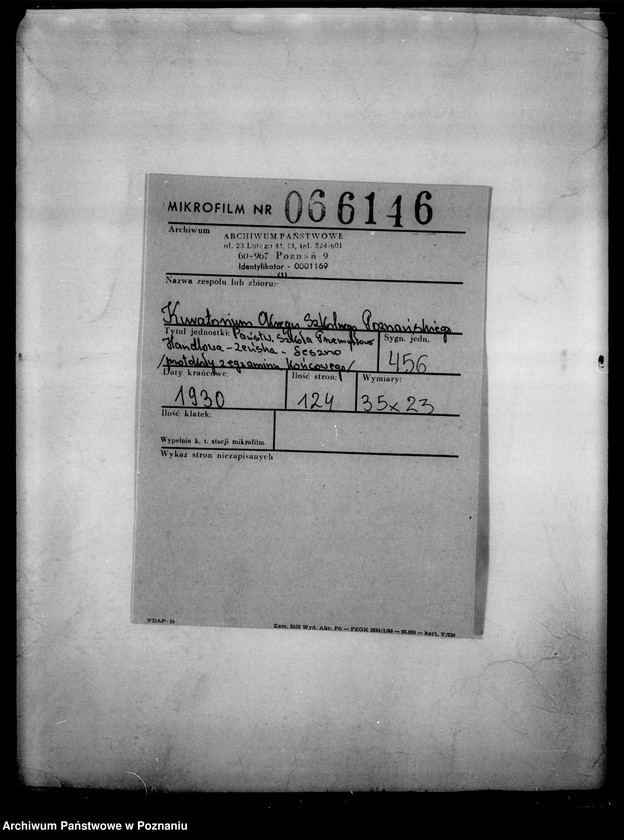 MIKROFILM NR 066146
Archiwum
ARCHIWUM PAŃSTWOWE
ul. 23 Lutego 41/43, tel. 524-601
60-967 Poznań 9
Identyfikator - 0001169
(1)
Nazwa zespołu lub zbioru:
Kuratorium Okręgu Szkolnego Poznańskiego
Tytuł jednostki: Państw. Szkoła Przemysłowo
Handlowa - żeńska - Leszno
/protokoły z egzaminu końcowego/
Sygn. jedn.
456
Daty krańcowe:
1930
Ilość stron:
124
Wymiary:
35x23
Ilość klatek:
Wypełnia k. t. stacji mikrofilm.
Wykaz stron niezapisanych
NDAP-10
Zam. 2025 Wyd. Akc. Pń — PZGK 2634/1/80 — 60.000 — kart. V/220
Archiwum Państwowe w Poznaniu